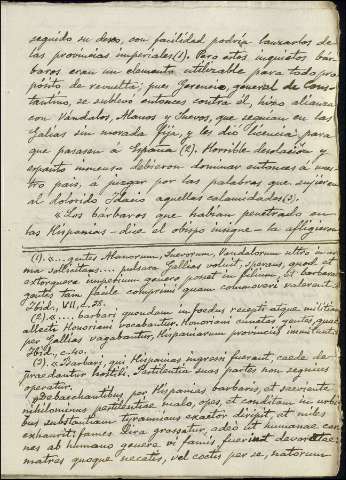 seguido su deseo, con facilidad podría lanzarlos de
las provincias imperiales (1). Pero estos inquietos bár-
baros eran un elemento utilizable para todo pro-
pósito de revuelta; pues Geroncio, general de Cons-
tantino, se sublevó entonces contra él, hizo alianza
con Vándalos, Alanos y Suevos, que seguían en las
Galias sin morada fija, y les dió licencia para
que pasasen á España (2). Horrible desolación y
espanto inmenso debieron dominar entonces á nues-
tro país, á juzgar por las palabras que sugieren
al dolorido Idacio aquellas calamidades (3).
"Los bárbaros que habían penetrado en
las Hispanias - dice el obispo insigne - la afligieron
(1). "... gentes Alanorum, Suevorum, Vandalorum ultro in ar-
ma sollicitans... pulsare Gallias voluit, sperans quod et
extorquere imperium genero posset in filium, et barbarae
gentes tam facile comprimi quam commoveri valerent."
Ibid., VII, c. 38.
(2). "... barbari quondam in foedus recepti atque militiam
allecti Honoriaci vocabantur. Honoriaci cunctas gentes quae
per Gallias vagabantur, Hispaniarum provinciis immittunt."
Ibid., c. 40.
(3). "Barbari, qui Hispanias ingressi fuerant, caede de-
praedantur hostili. Pestilentia suas partes non segnius
operatur.
"Debacchantibus per Hispanias barbaris, et saeviente
nihilominus pestilentiae malo, opes, et conditam in urbi-
bus substantiam tyrannicus exactor diripit, et miles
exhaurit: fames dira grassatur, adeo ut humanae car-
nes ab humano genere vi famis fuerint devoratae:
matres quoque necatis, vel coctis per se, natorum